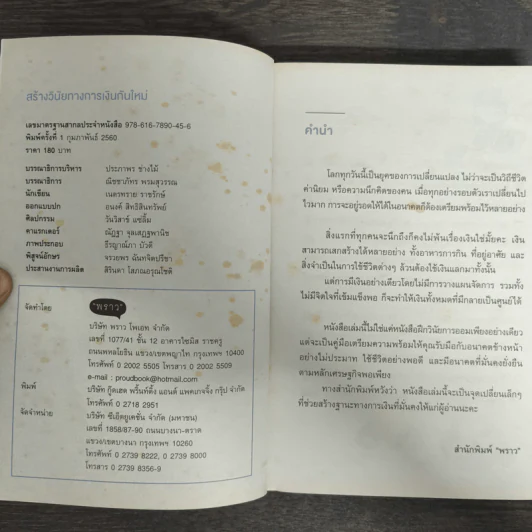 สร้างวินัยทางการเงินกันใหม่
เลขมาตรฐานสากลประจำหนังสือ 978-616-7890-45-6
พิมพ์ครั้งที่ 1 กุมภาพันธ์ 2560
ราคา 180 บาท
บรรณาธิการบริหาร ประภาพร ช่างไม้
บรรณาธิการ ณัชชาภัทร พรมสุวรรณ
นักเขียน เนตรทราย ราชรักษ์
ออกแบบปก อนงค์ สิทธิสินทรัพย์
ศิลปกรรม วันวิสาข์ แซ่ลิ้ม
คาแรกเตอร์ ณัฏฐา จุลเสฏฐพานิช
ภาพประกอบ ธีรญาณ์ภา บัวดี
พิสูจน์อักษร จรวยพร ฉันทจิตปรีชา
ประสานงานการผลิต สิรินดา โสภณอรุณโชติ
จัดทำโดย "พราว"
บริษัท พราว โพเอท จำกัด
เลขที่ 1077/41 ชั้น 12 อาคารไซมิส ราชครู
ถนนพหลโยธิน แขวง/เขตพญาไท กรุงเทพฯ 10400
โทรศัพท์ 0 2002 5505 โทรสาร 0 2002 5509
e-mail : proudbook@hotmail.com
พิมพ์ บริษัท กู๊ดเฮด พริ้นท์ติ้ง แอนด์ แพคเกจจิ้ง กรุ๊ป จำกัด
โทรศัพท์ 0 2718 2951
จัดจำหน่าย บริษัท ซีเอ็ดยูเคชั่น จำกัด (มหาชน)
เลขที่ 1858/87-90 ถนนบางนา-ตราด
แขวง/เขตบางนา กรุงเทพฯ 10260
โทรศัพท์ 0 2739 8222, 0 2739 8000
โทรสาร 0 2739 8356-9
คำนำ
โลกทุกวันนี้เป็นยุคของการเปลี่ยนแปลง ไม่ว่าจะเป็นวิถีชีวิต
ค่านิยม หรือความนึกคิดของคน เมื่อทุกอย่างรอบตัวเราเปลี่ยนไป
ไวมาก การจะอยู่รอดให้ได้ในอนาคตก็ต้องเตรียมพร้อมไว้หลายอย่าง
สิ่งแรกที่ทุกคนจะนึกถึงก็คงไม่พ้นเรื่องเงินใช่มั้ยคะ เงิน
สามารถเสกสร้างได้หลายอย่าง ทั้งอาหารการกิน ที่อยู่อาศัย และ
สิ่งจำเป็นในการใช้ชีวิตต่างๆ ล้วนต้องใช้เงินแลกมาทั้งนั้น
แต่การมีเงินอย่างเดียวโดยไม่มีการวางแผนจัดการ รวมทั้ง
ไม่มีจิตใจที่เข้มแข็งพอ ก็จะทำให้เงินทั้งหมดที่มีกลายเป็นศูนย์ได้
หนังสือเล่มนี้ไม่ใช่แค่หนังสือฝึกวินัยการออมเพียงอย่างเดียว
แต่จะเป็นคู่มือเตรียมความพร้อมให้คุณรับมือกับอนาคตข้างหน้า
อย่างไม่ประมาท ใช้ชีวิตอย่างพอดี และมีอนาคตที่มั่นคงยั่งยืน
ตามหลักเศรษฐกิจพอเพียง
ทางสำนักพิมพ์หวังว่า หนังสือเล่มนี้จะเป็นจุดเปลี่ยนเล็กๆ
ที่ช่วยสร้างฐานะทางการเงินที่มั่นคงให้แก่ผู้อ่านนะคะ
สำนักพิมพ์ "พราว"